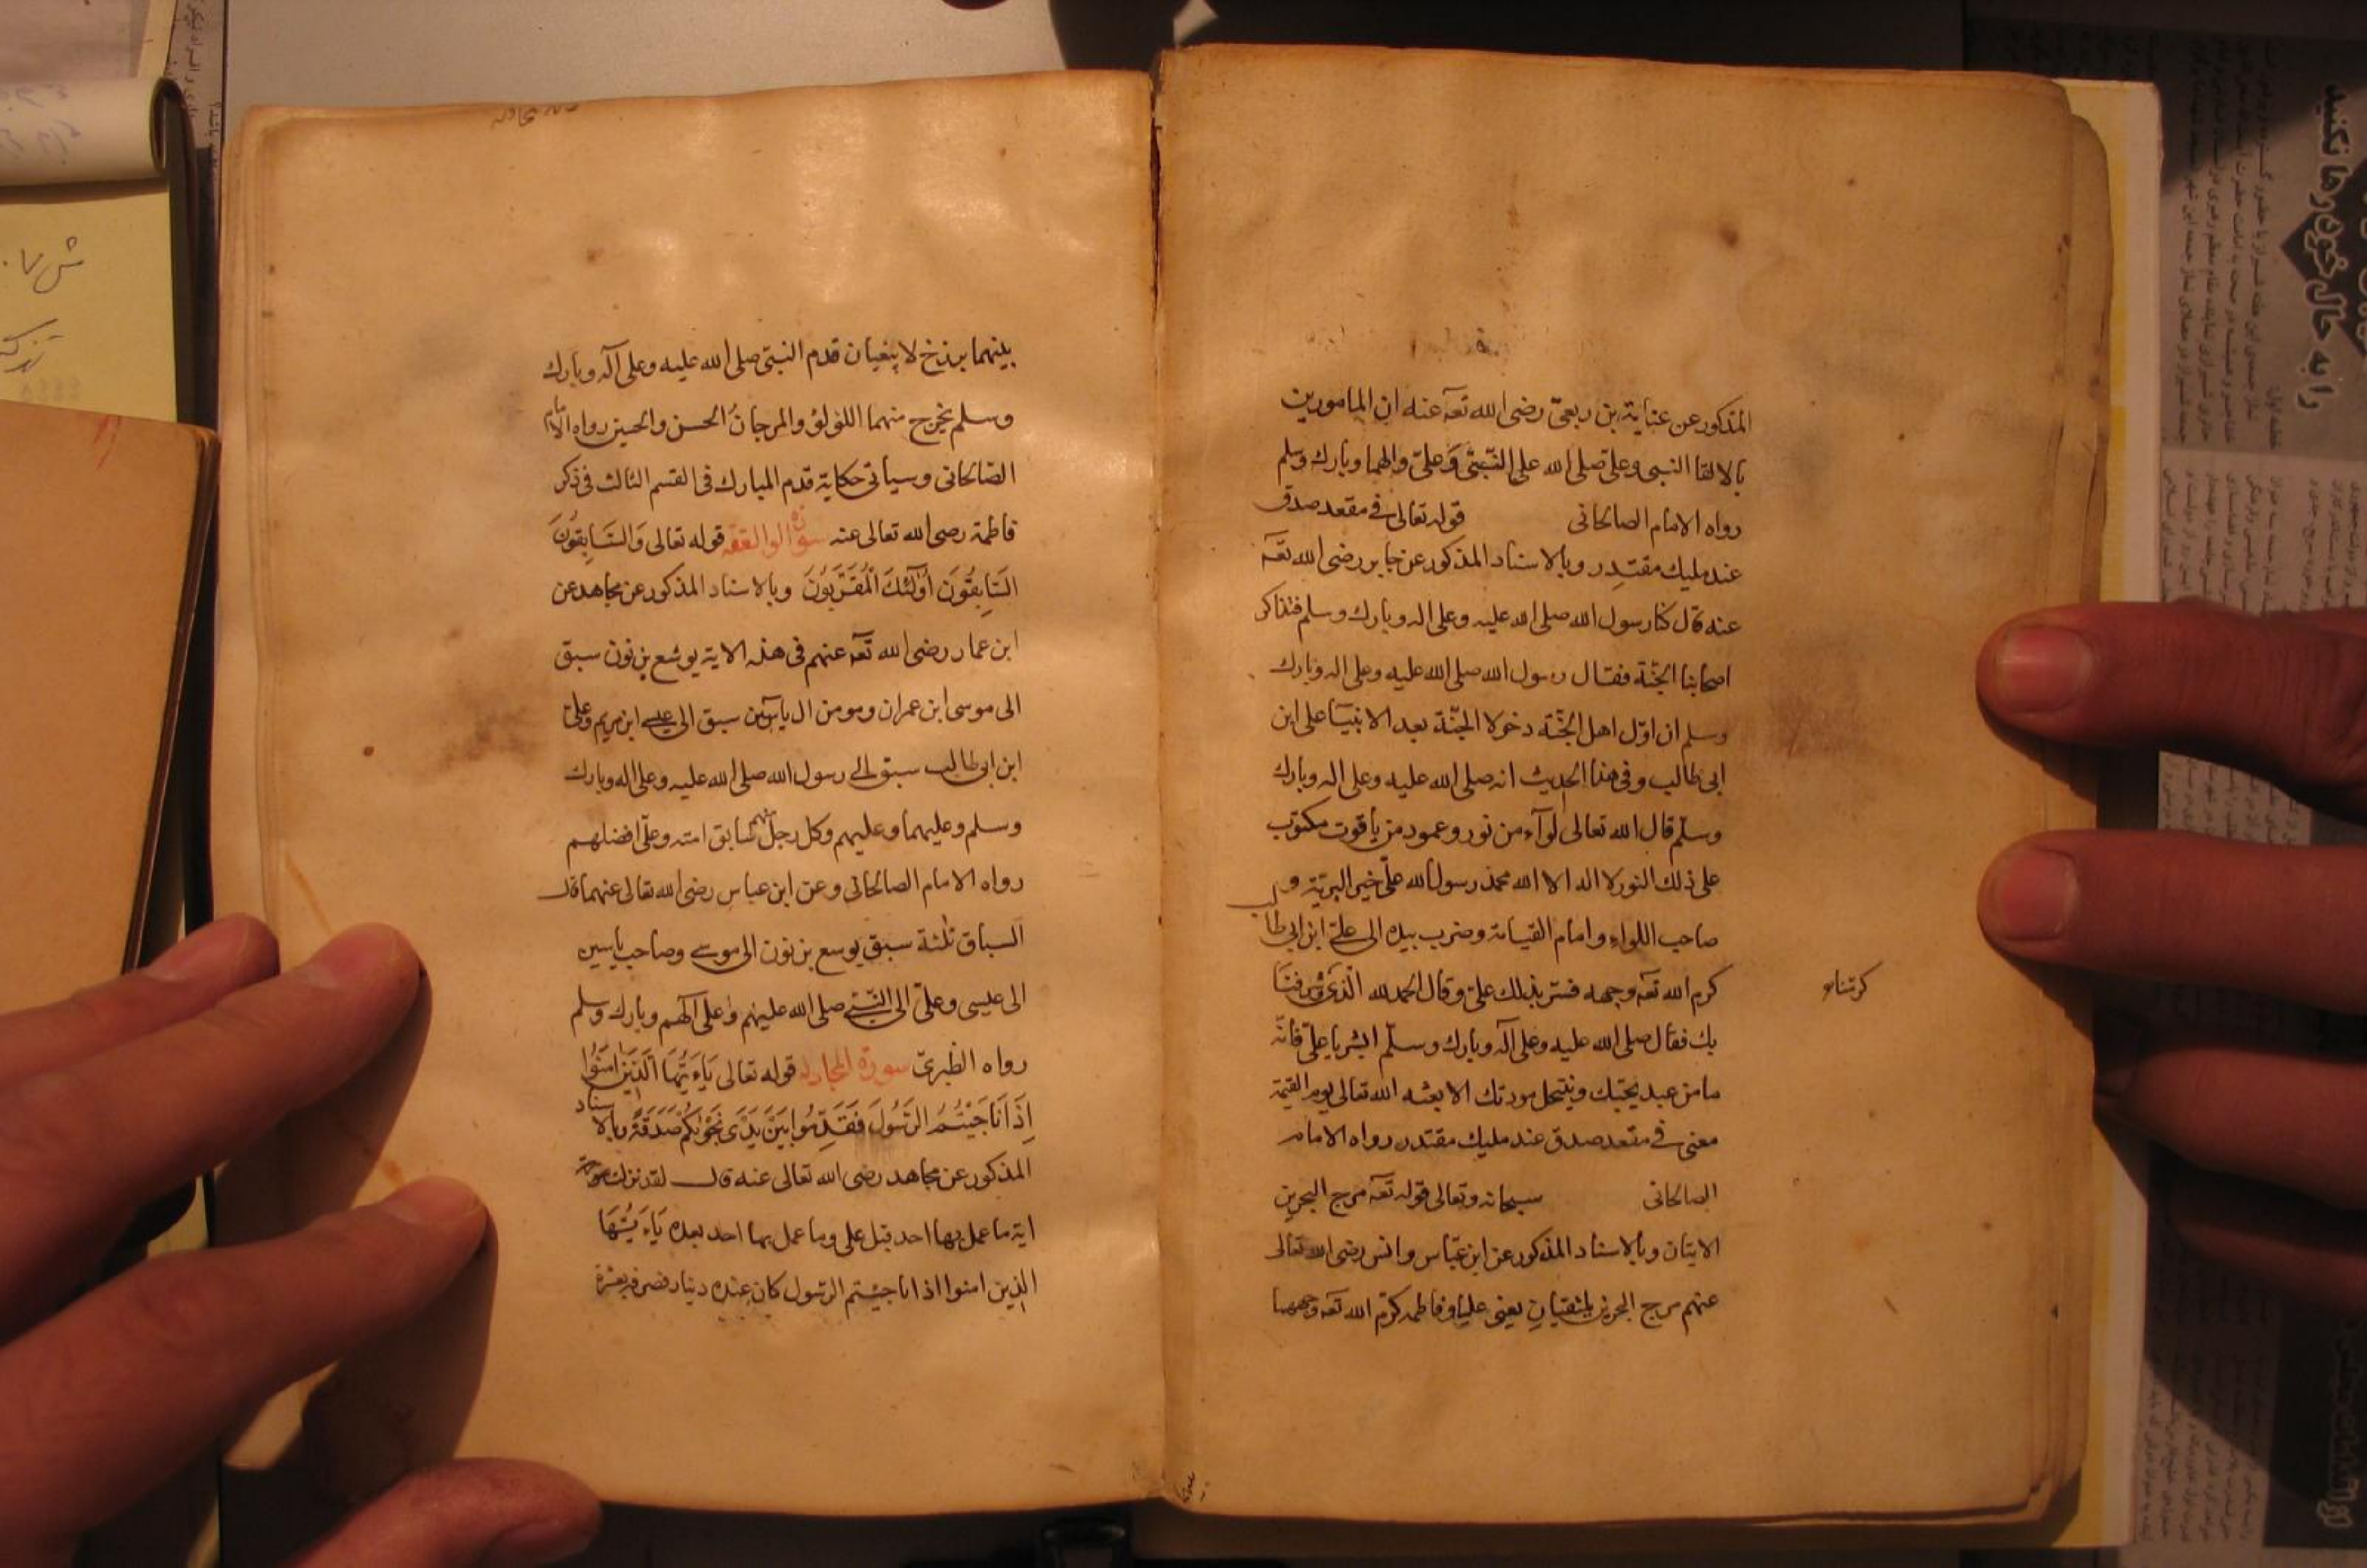 المذكور عن عناية بن ربعيّ رضى الله تعه عنه ان المامورين
بالالقا النبى وعلى صلى الله على النّبىّ وَعلىّ والهما وبارك وسلم
رواه الامام الصالحانى قوله تعالى فى مقعد صدق
عند مليك مقتدر وبالاسناد المذكور عن جابر رضى الله تعه
عنه قال كنا رسول الله صلى الله عليه وعلى اله وبارك وسلم فتذاكر
اصحابنا الجنّة فقال رسول الله صلى الله عليه وعلى اله وبارك
وسلم ان اوّل اهل الجنّة دخولا الجنّة بعد الانبيَا على ابن
ابى طالب وفى هذا الحديث انه صلى الله عليه وعلى اله وبارك
وسلّم قال الله تعالى لوآء من نور وعمود من ياقوت مكتوب
على ذلك النور لا اله الا الله محمد رسول الله علىّ خير البريّة و
صاحب اللواء وامام القيامة وضرب بيده الى علىّ ابن ابى طالب
كرم الله تعه وجهه فسّر بذلك علىّ وقال الحمد لله الّذى شرفنَا
كرمنا
بك فقال صلى الله عليه وعلى آله وبارك وسلّم ابشر يا علىّ فانّه
ما من عبد يحبّك وينتحل مودتك الا بعثه الله تعالى يوم القيمة
معنى فى مقعد صدق عند مليك مقتدر رواه الامام
الصالحانى سبحانه وتعالى قوله تعه مرج البحرين
الايتان وبالاسناد المذكور عن ابن عبّاس وانس رضى الله تعالى
عنهم مرج البحرين يلتقيان يعنى عليا وفاطمه كرّم الله تعه وجههما
بينهما برزخ لا يبغيان قدم النبىّ صلى الله عليه وعلى آله وبارك
وسلم يخرج منهما اللؤلؤ والمرجانُ الحسن والحسين رواه الامام
الصّالحانى وسياتى حكاية قدم المبارك فى القسم الثالث فى ذكر
فاطمة رضى الله تعالى عنه سورة الواقعه قوله تعالى وَالسَّابِقُونَ
السَّابِقُونَ اُولٰٓئكَ الْمُقَرَّبُونَ وبالاسناد المذكور عن مجاهد عن
ابن عمار رضى الله تعه عنهم فى هذه الاية يوشع بن نون سبق
الى موسى ابن عمران ومومن ال ياسٓين سبق الى عيسى ابن مريم وعلىّ
ابن ابى طالب سبق الى رسول الله صلى الله عليه وعلى اله وبارك
وسلم وعليهما وعليهم وكل رجل منهم سابق امته وعلىّ افضلهم
رواه الامام الصالحانى وعن ابن عباس رضى الله تعالى عنهما قال
السباق ثلثة سبق يوسع بن نون الى موسى وصاحب ياسين
الى عيسى وعلىّ الى النّبىّ صلى الله عليهم وعلى آلهم وبارك وسلم
رواه الطبرىّ سورة المجادله قوله تعالى يَاءَيُّهَا الَّذِيَن اٰمَنُوا
اِذَا نَاجَيْتُمُ الرَّسُولَ فَقَدِّمُوا بَيْنَ يَدَىْ نَجْوٰيكُمْ صَدَقَةً وبالاسناد
المذكور عن مجاهد رضى الله تعالى عنه قال لقد نزلت
اية ما عمل بها احد قبل على وما عمل بها احد بعده يَاءَيُّهَا
الذين امنوا اذا ناجيتم الرّسول كان عنده دينار فصرفه بعشرة